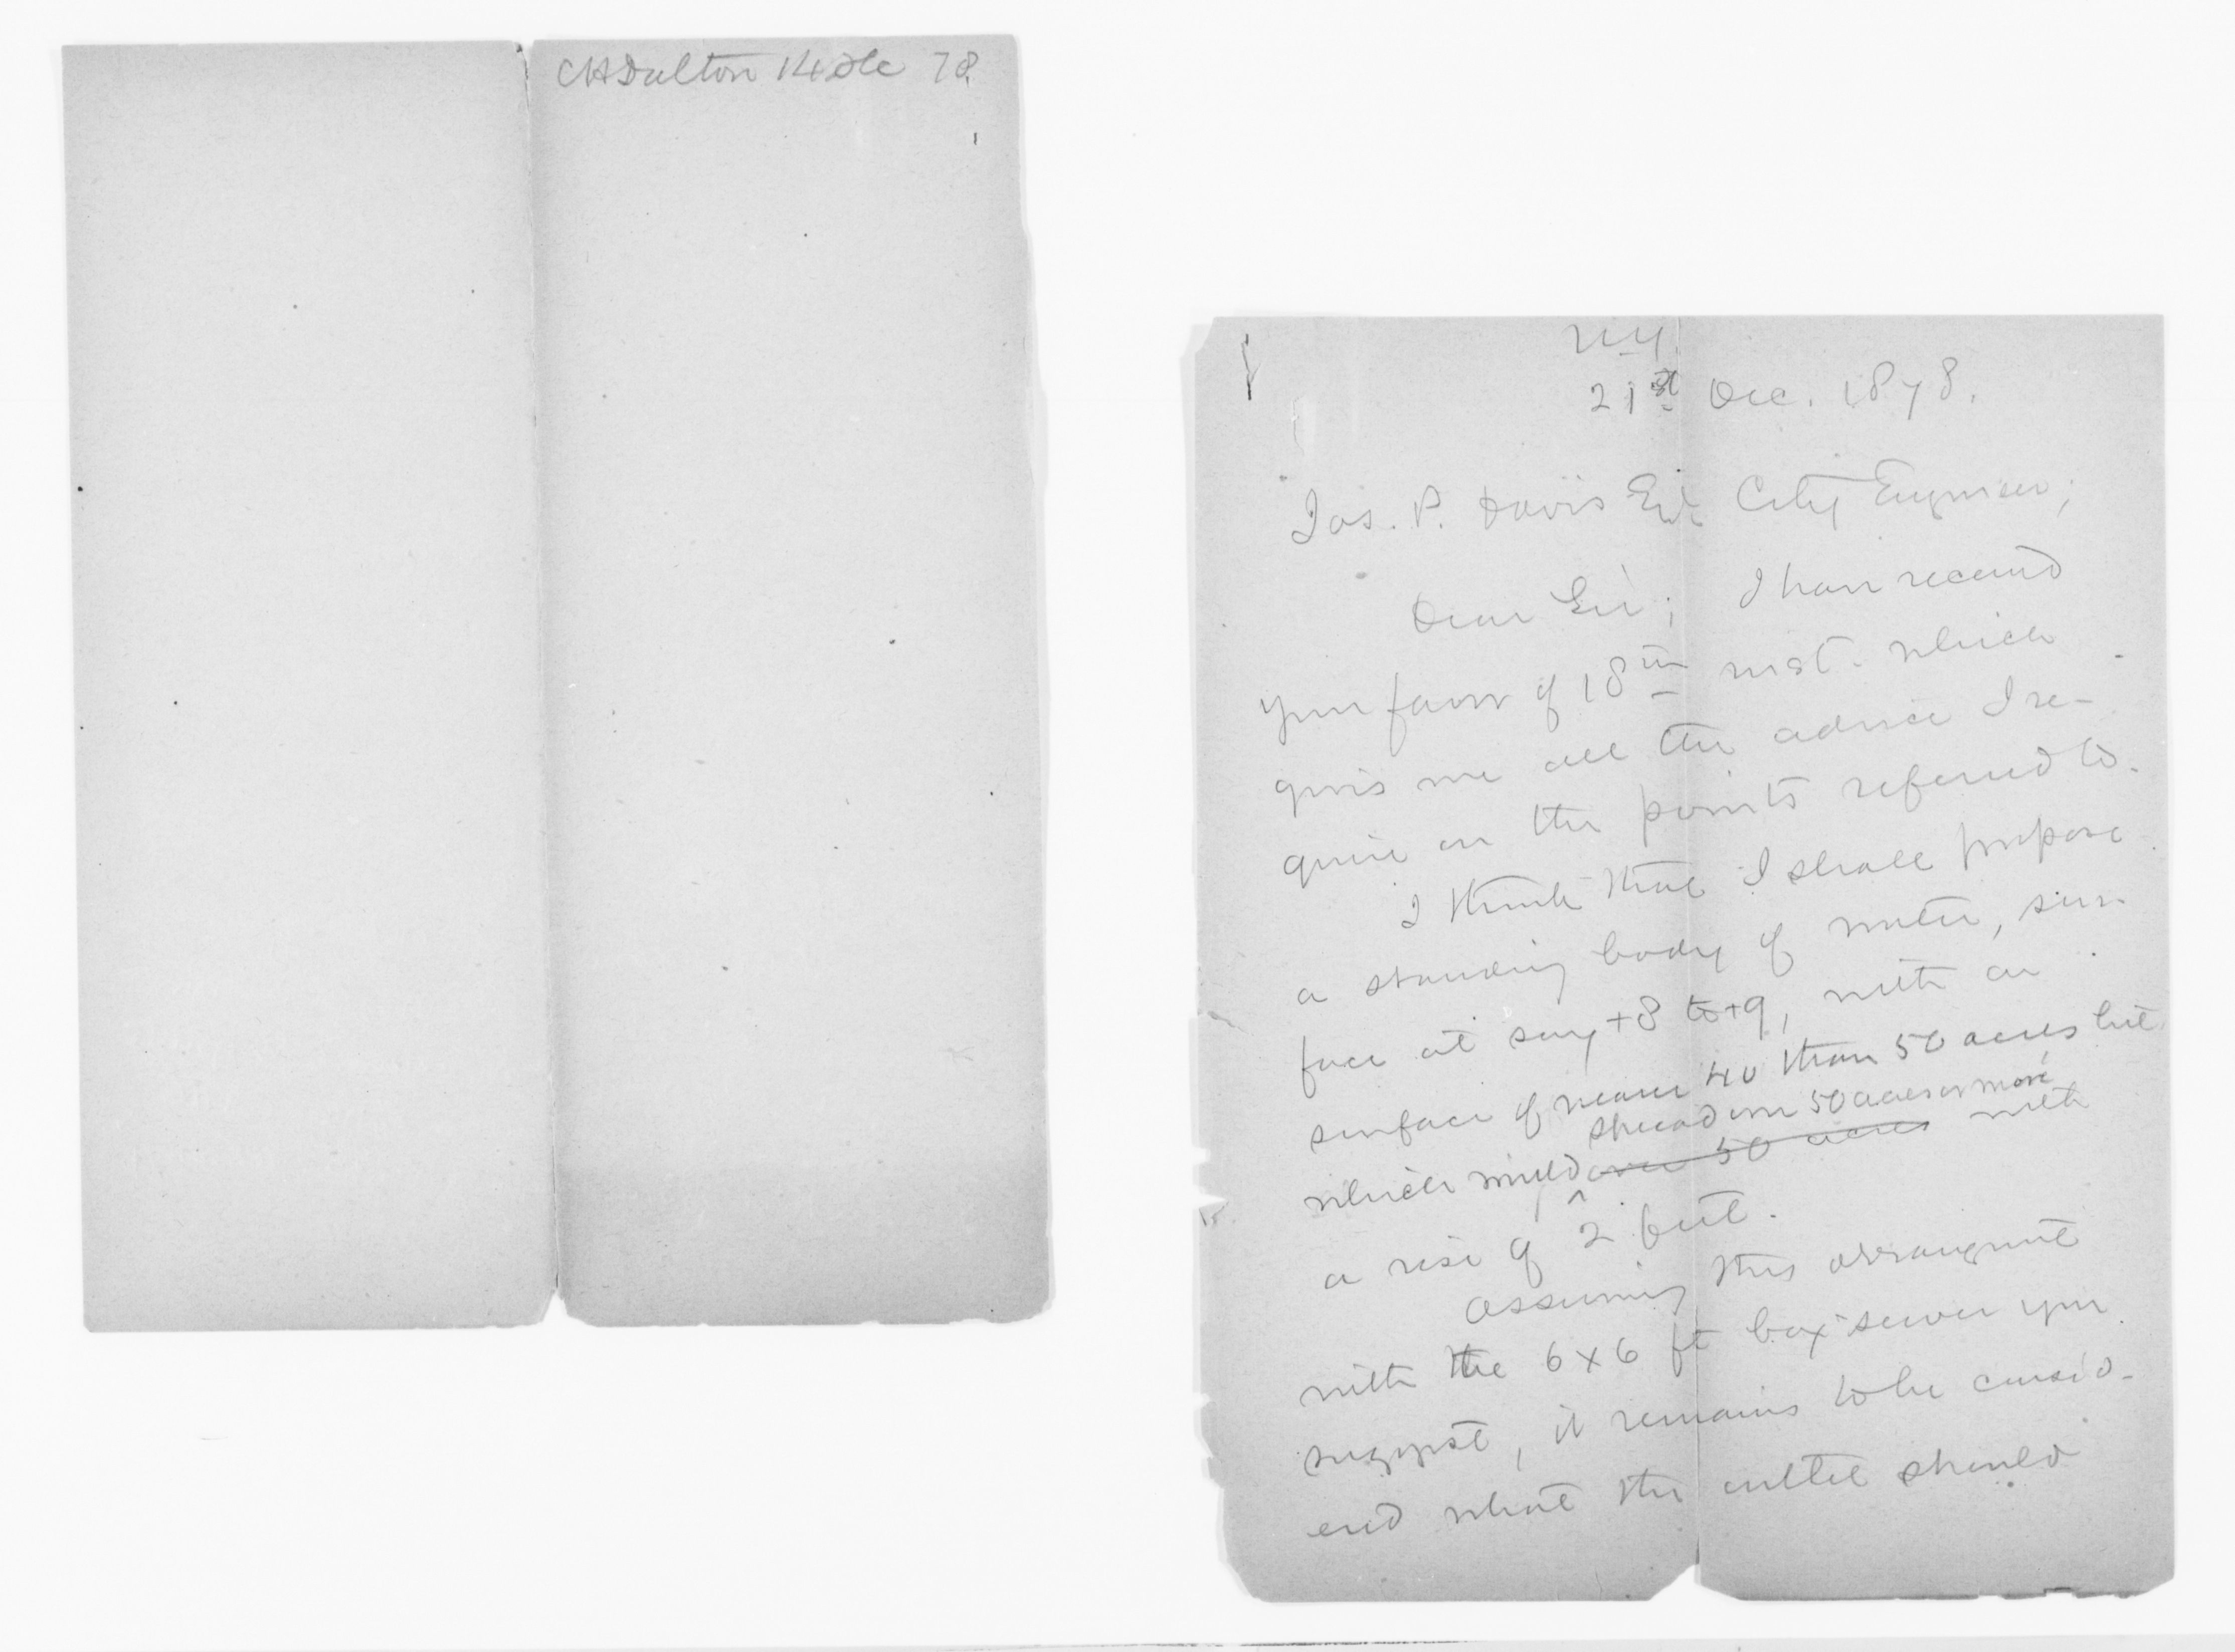 CHDalton 14 De 78
N.Y.
21st Dec. 1878.
Jos. P. Davis Esq City Engineer;
Dear Sir; I have received
your favor of 18th inst. which
gives me all the advice I re-
quire on the points referred to.
I think that I shall propose
a standing body of water, sur-
face at say +8 to +9, with a
surface of nearer 40 than 50 acres but
spread over 50 acres or more
which would over 50 acres with
a rise of 2 feet.
Assuming this arrangement
with the 6x6 ft box sewer you
suggest, it remains to be consid-
ered what the outlet should